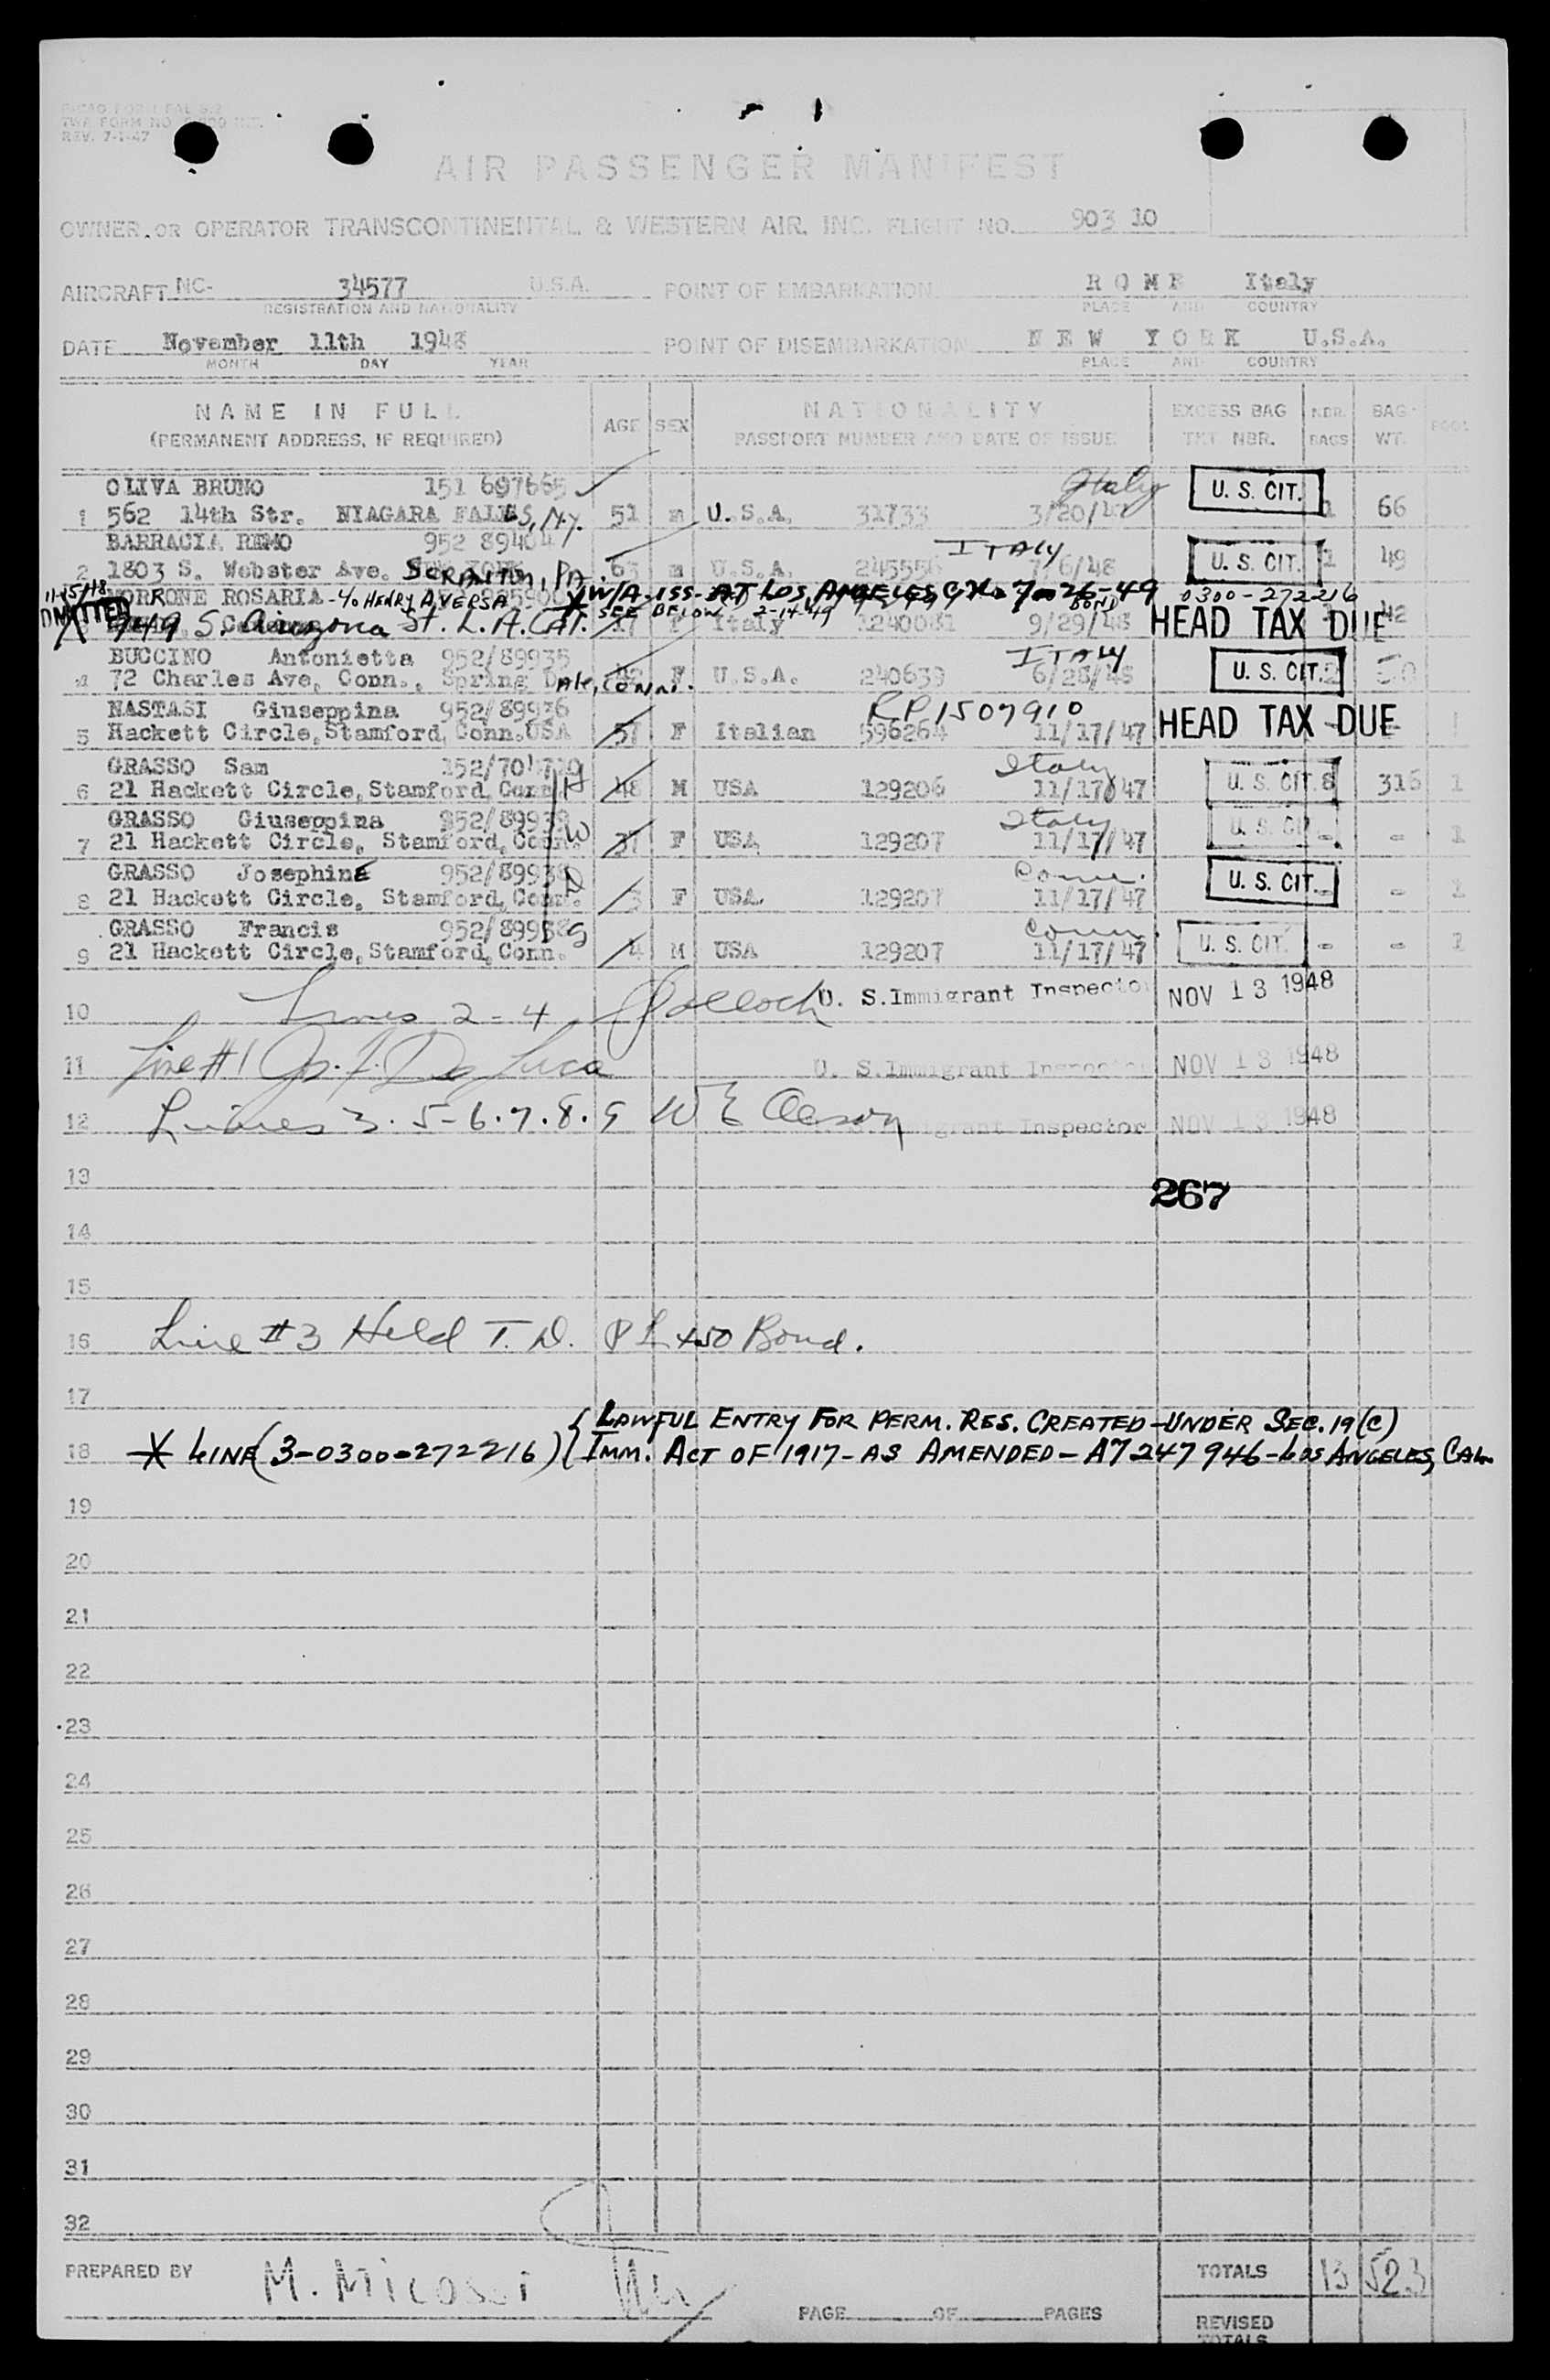 REV. 7-1-47
AIR PASSENGER MANIFEST
OWNER OR OPERATOR TRANSCONTINENTAL & WESTERN AIR, INC. FLIGHT NO. 903 10
AIRCRAFT NC- 34577 U.S.A. POINT OF EMBARKATION ROME Italy
REGISTRATION AND NATIONALITY PLACE AND COUNTRY
DATE November 11th 1948 POINT OF DISEMBARKATION NEW YORK U.S.A.
MONTH DAY YEAR PLACE AND COUNTRY
NAME IN FULL AGE SEX NATIONALITY EXCESS BAG NBR. BAG
(PERMANENT ADDRESS, IF REQUIRED) PASSPORT NUMBER AND DATE OF ISSUE TKT NBR. BAGS WT.
OLIVA BRUNO 151 697665 Italy U. S. CIT.
1 562 14th Str. NIAGARA FALLS, N.Y. 51 m U.S.A. 31733 3/20/ 1 66
BARRACIA REMO 952 89404 ITALY U. S. CIT.
2 1803 S. Webster Ave. SCRANTON, PA. 63 m U.S.A. 245556 7/6/48 1 49
11-15-48 MORRONE ROSARIA - c/o HENRY AVERSA W/A ISS- AT LOS ANGELES 7-26-49 0300-272216
ADMITTED SEE BELOW 2-14-49 BOND
949 S. Arizona St. L.A. CAL. 17 F Italy 1240081 9/29/48 HEAD TAX DUE 42
BUCCINO Antonietta 952/89935 ITALY U. S. CIT.
4 72 Charles Ave, Conn., Spring DALE, CONN. F U.S.A. 240639 6/28/48 2 50
NASTASI Giuseppina 952/89936 RP 1507910
5 Hackett Circle, Stamford, Conn. USA 57 F Italian 596264 11/17/47 HEAD TAX DUE
GRASSO Sam Italy U. S. CIT.
6 21 Hackett Circle, Stamford, Conn. H 48 M USA 129206 11/17/47 8 315 1
GRASSO Giuseppina 952/89938 Italy U. S. CIT.
7 21 Hackett Circle, Stamford, Conn. W 37 F USA 129207 11/17/47 - - 1
GRASSO Josephine 952/89938 D Conn. U. S. CIT.
8 21 Hackett Circle, Stamford, Conn. 3 F USA. 129207 11/17/47 - - 1
GRASSO Francis 952/89938 S Conn. U. S. CIT.
9 21 Hackett Circle, Stamford, Conn. 4 M USA 129207 11/17/47 - - 1
10 Lines 2-4 U. S. Immigrant Inspector NOV 13 1948
11 Line #1 De Luca U. S. Immigrant Inspector NOV 13 1948
12 Lines 3.5-6.7.8.9 W E Immigrant Inspector NOV 13 1948
13
267
14
15
16 Line #3 Held T.D. Bond.
17
LAWFUL ENTRY FOR PERM. RES. CREATED-UNDER SEC. 19(C)
18 * LINE (3-0300-272216) IMM. ACT OF 1917-AS AMENDED-A7247946-LOS ANGELES, CAL.
19
20
21
22
23
24
25
26
27
28
29
30
31
32
PREPARED BY M. Micossi TOTALS 13 523
PAGE OF PAGES
REVISED
TOTALS